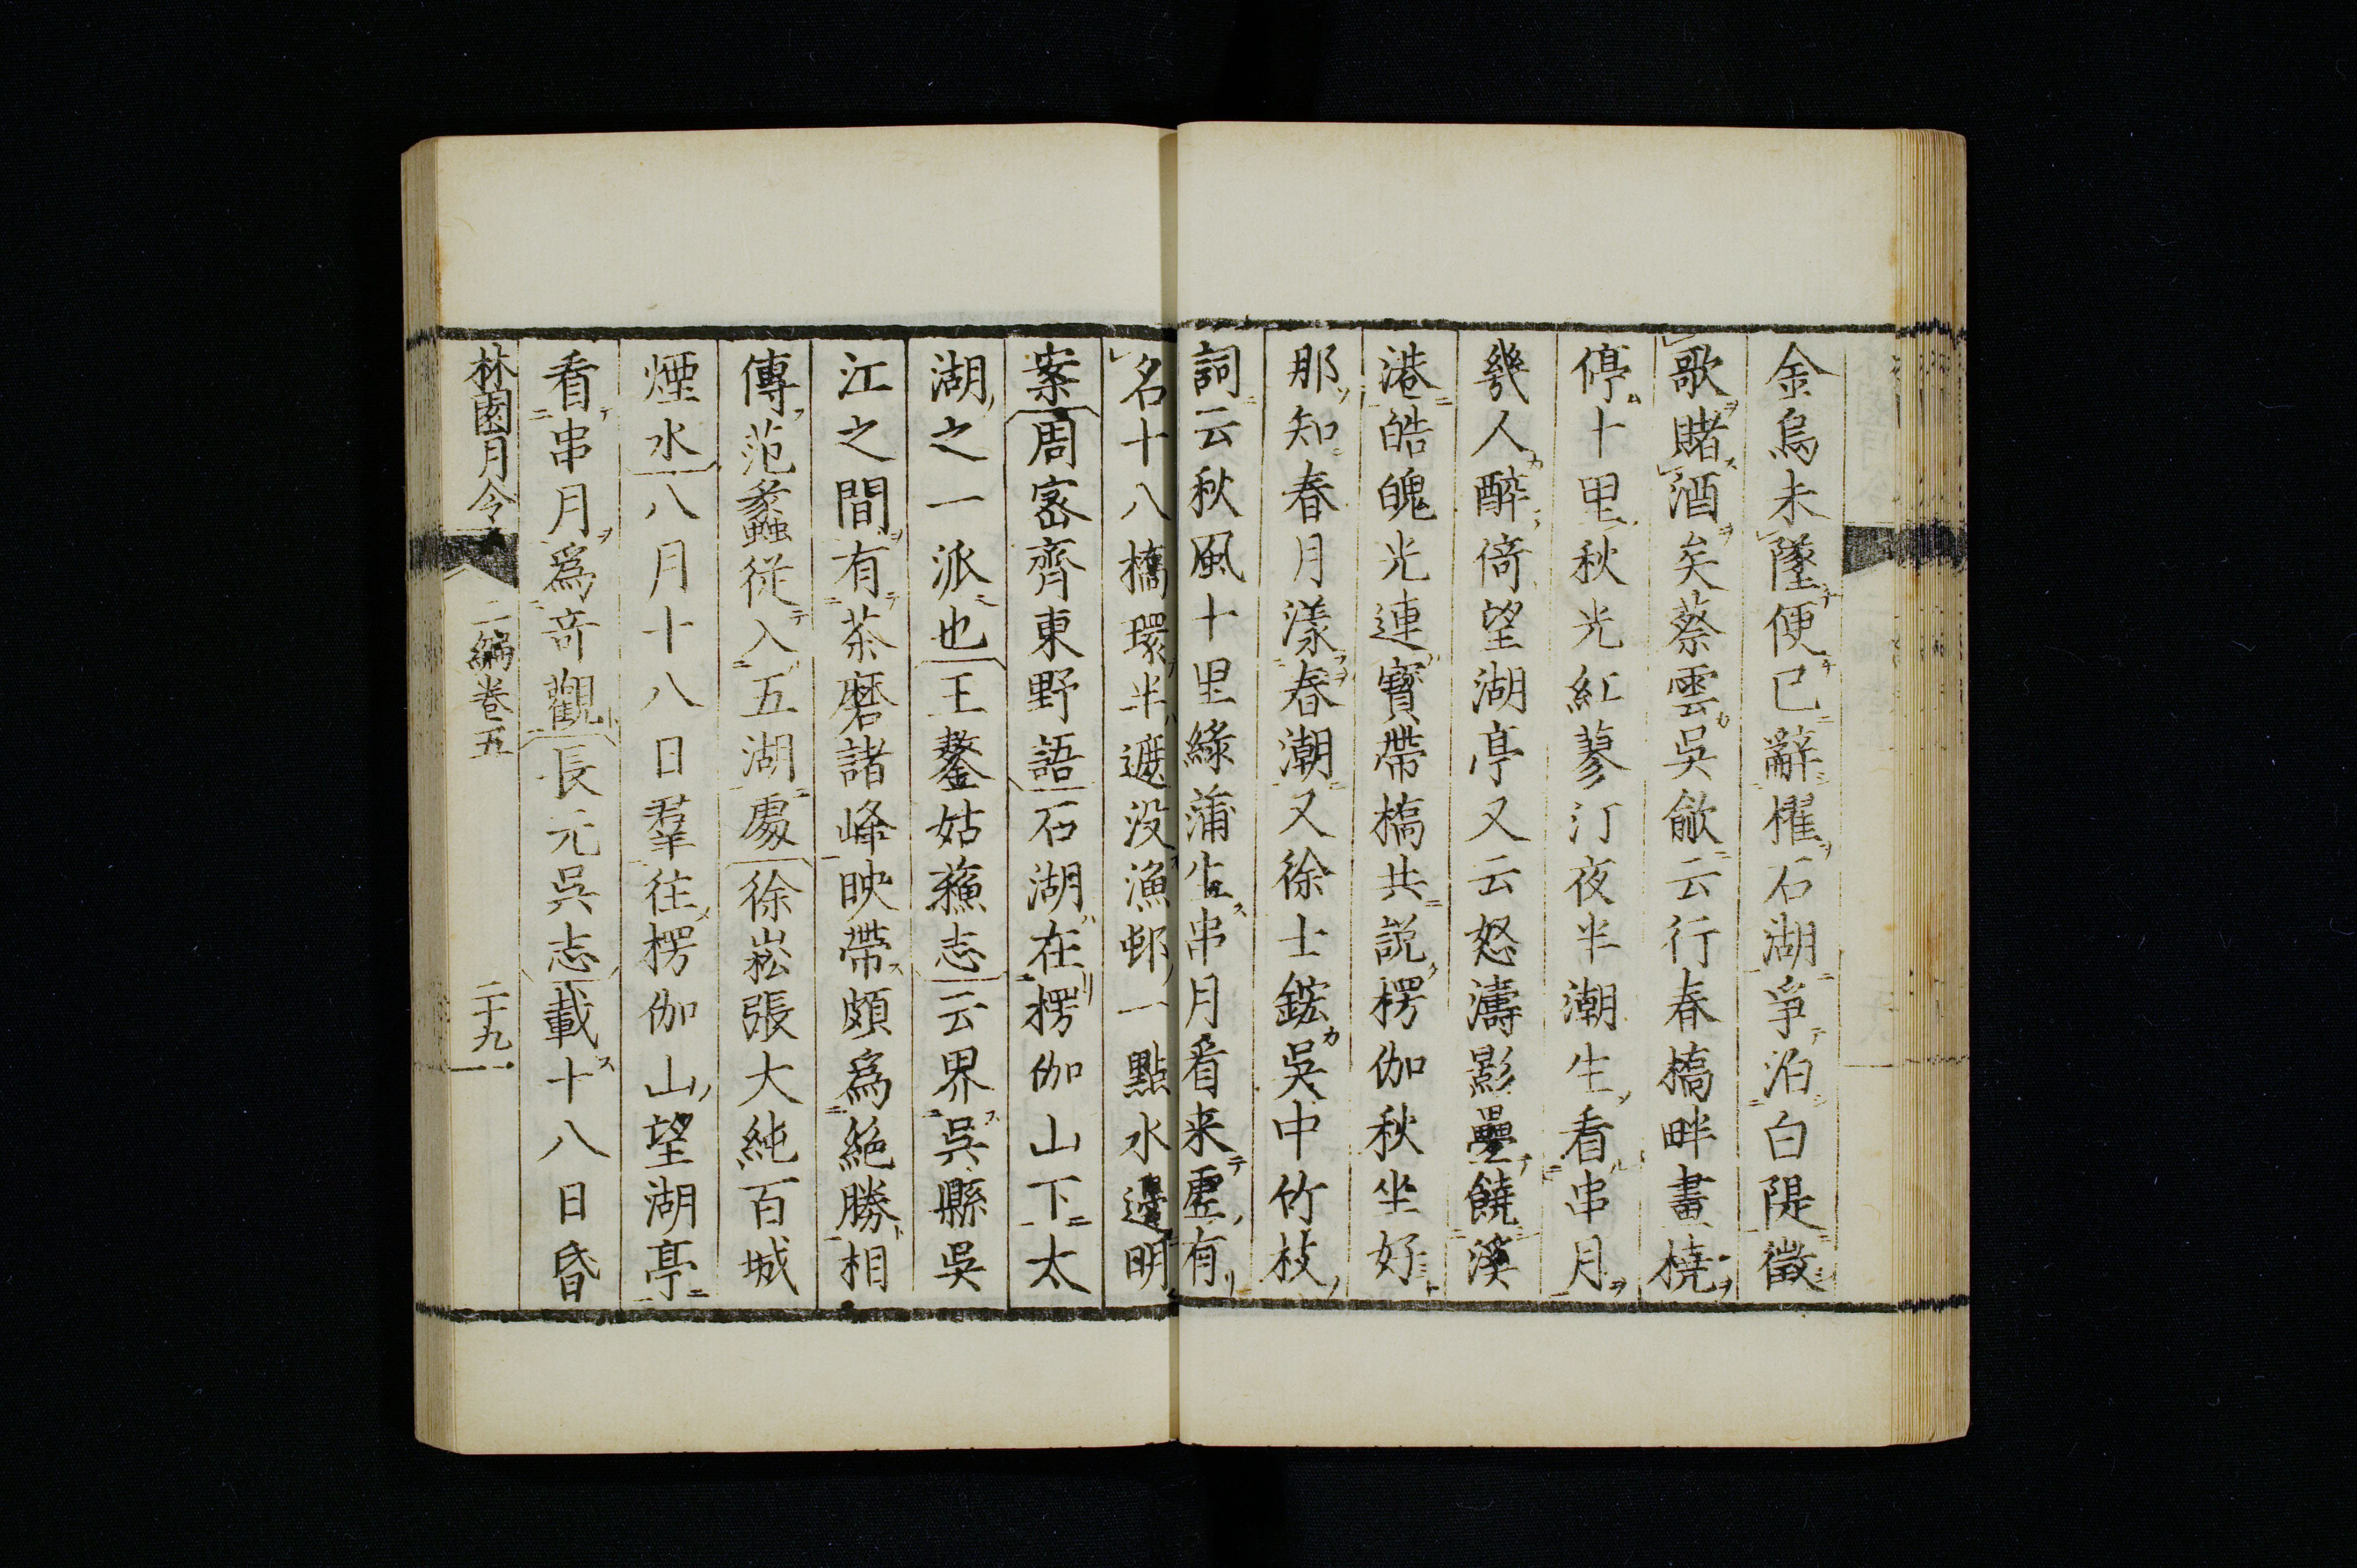 金烏未墜便已辭櫂石湖爭泊白隄徵
歌賭酒矣蔡雲吳歈云行春橋畔畫橈
停十里秋光紅蓼汀夜半潮生看串月
幾人醉倚望湖亭又云怒濤影疊饒溪
港皓魄光連寳帶橋共説楞伽秋坐好
那知春月漾春潮又徐士鋐吳中竹枝
詞云秋風十里綠蒲生串月看来虛有
名十八橋環半遮没漁邨一點水邊明
案周密齊東野語石湖在楞伽山下太
湖之一派也王鏊姑蘇志云界吳縣吳
江之間有茶磨諸峰映帶頗爲絶勝相
傳范蠡從入五湖處徐崧張大純百城
煙水八月十八日羣往楞伽山望湖亭
看串月爲竒觀長元吳志載十八日昏
林園月令 二編卷五 二十九